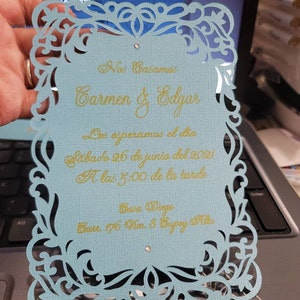 Nos Casamos
Carmen & Edgar
Los esperamos el día
Sábado 26 de junio del 2021
A las 5:00 de la tarde
Casa Diego
Carr. 176 Km. 8 Cupey Alto